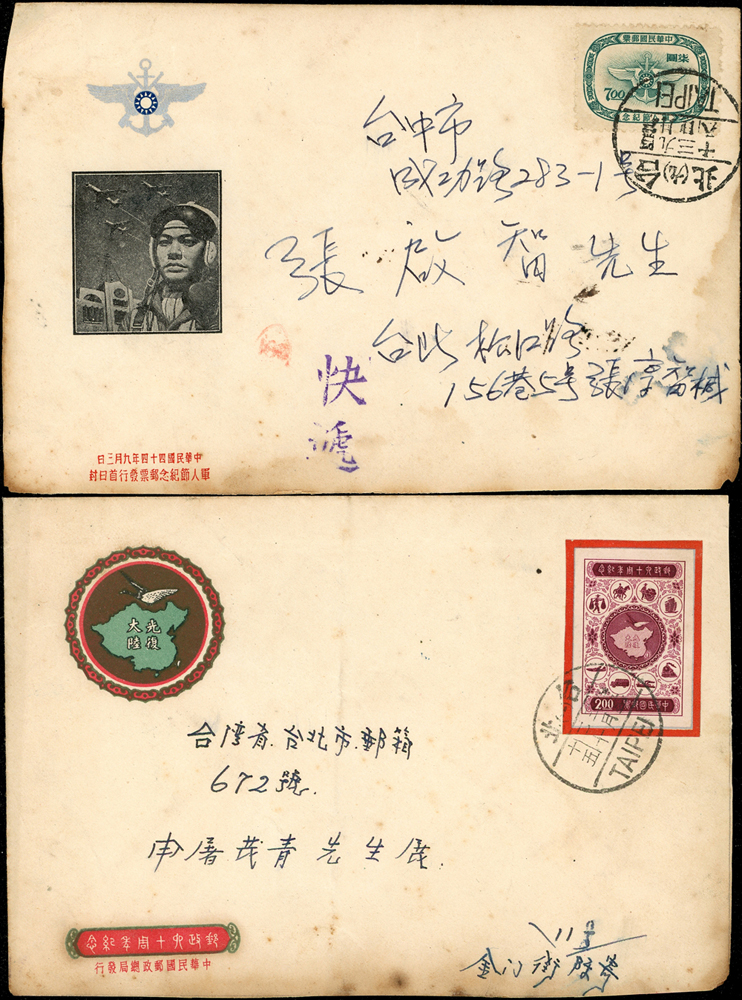 中華民國郵票
柒圓
7.00
軍人節紀念
台北
TAIPEI
台中市
成功路283-1号
張啟智先生
台北松江路
156巷5号張
快
遞
日三月九年四十四國民華中
封日首行發票郵念紀節人軍
光復
大陸
郵政六十周年紀念
2.00
中華民國郵票
台北
TAIPEI
台湾省台北市郵箱
672號.
申屠茂青先生展
11
金门街
郵政六十周年紀念
中華民國郵政總局發行